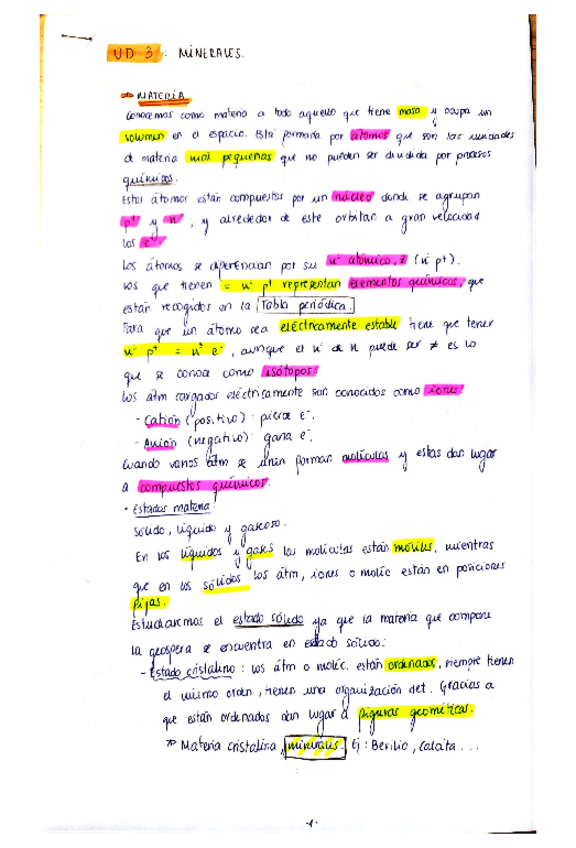 UD 3: MINERALES.
MATERIA
Conocemos como materia a todo aquello que tiene masa y ocupa un
volumen en el espacio. Está formada por átomos que son las unidades
de materia más pequeñas que no pueden ser dividida por procesos
químicos.
Estos átomos están compuestos por un núcleo donde se agrupan
p+ y n, y alrededor de este orbitan a gran velocidad
los e-.
Los átomos se diferencian por su nº atómico, Z (nº p+).
Los que tienen = nº p+ representan elementos químicos, que
están recogidos en la Tabla periódica.
Para que un átomo sea eléctricamente estable tiene que tener
nº p+ = nº e-, aunque el nº de n puede ser ≠ es lo
que se conoce como isótopos.
Los átm cargados eléctricamente son conocidos como iones
- Catión (positivo): pierde e-.
- Anión (negativo): gana e-.
Cuando varios átm se unen forman moléculas y estas dan lugar
a compuestos químicos.
- Estados materia:
Sólido, líquido y gaseoso.
En los líquidos y gases las moléculas están móviles, mientras
que en los sólidos los átm, iones o moléc están en posiciones
fijas.
Estudiaremos el estado sólido ya que la materia que compone
la geosfera se encuentra en estado sólido:
- Estado cristalino: los átm o moléc. están ordenados, siempre tienen
el mismo orden, tienen una organización det. Gracias a
que están ordenados dan lugar a figuras geométicas.
Materia cristalina, minerales. Ej: Berilio, Calcita...
-1-